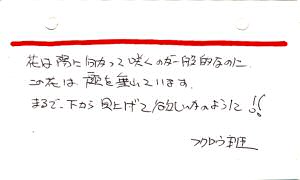 花は陽に向かって咲くのが一般的なのに
この花は頭を垂れています。
まるで、下から見上げて欲しいかのように!!